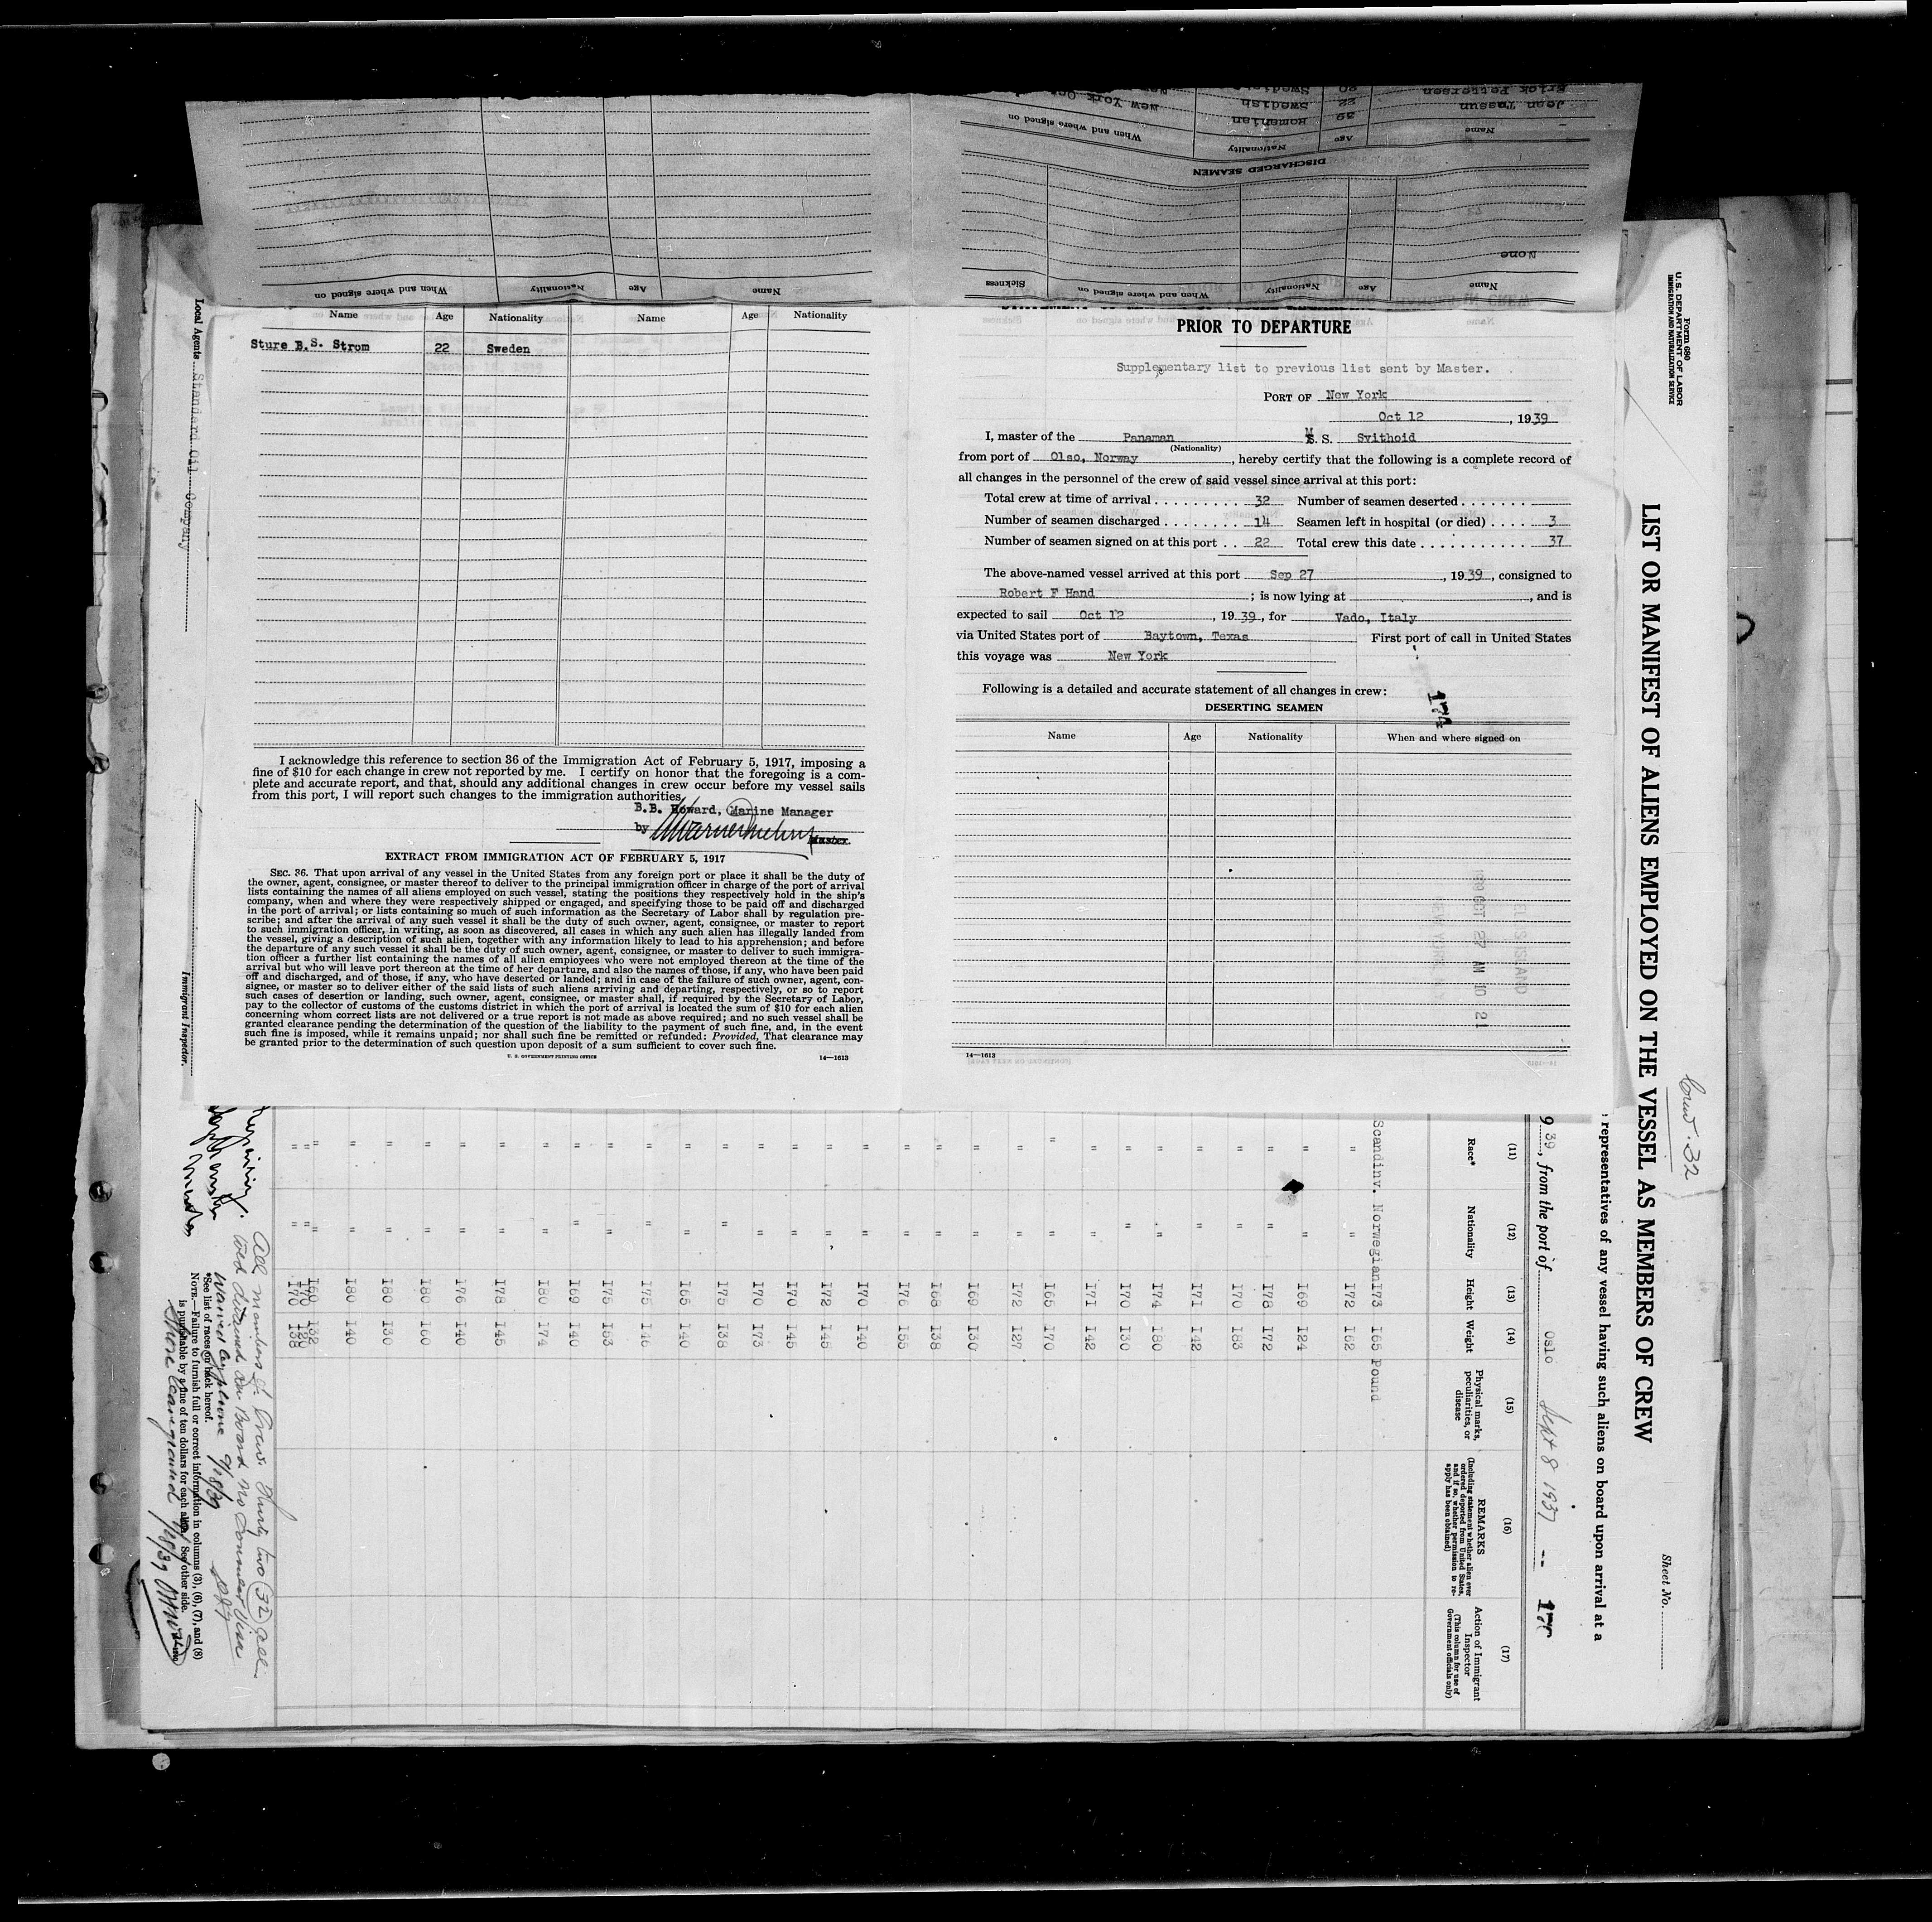 Erick Pettersen 20 Swedish
Jean Tasun 22 Swedish New York Oct
39 Romanian
Name Age Nationality When and where signed on
DISCHARGED SEAMEN
None
Name Age Nationality When and where signed on Sickness
Name Age Nationality When and where signed on
Name Age Nationality Name Age Nationality
Sture B.S. Strom 22 Sweden
I acknowledge this reference to section 36 of the Immigration Act of February 5, 1917, imposing a
fine of $10 for each change in crew not reported by me. I certify on honor that the foregoing is a com-
plete and accurate report, and that, should any additional changes in crew occur before my vessel sails
from this port, I will report such changes to the immigration authorities.
B.B. Howard, Marine Manager
by
Master.
EXTRACT FROM IMMIGRATION ACT OF FEBRUARY 5, 1917
SEC. 36. That upon arrival of any vessel in the United States from any foreign port or place it shall be the duty of
the owner, agent, consignee, or master thereof to deliver to the principal immigration officer in charge of the port of arrival
lists containing the names of all aliens employed on such vessel, stating the positions they respectively hold in the ship's
company, when and where they were respectively shipped or engaged, and specifying those to be paid off and discharged
in the port of arrival; or lists containing so much of such information as the Secretary of Labor shall by regulation pre-
scribe; and after the arrival of any such vessel it shall be the duty of such owner, agent, consignee, or master to report
to such immigration officer, in writing, as soon as discovered, all cases in which any such alien has illegally landed from
the vessel, giving a description of such alien, together with any information likely to lead to his apprehension; and before
the departure of any such vessel it shall be the duty of such owner, agent, consignee, or master to deliver to such immigra-
tion officer a further list containing the names of all alien employees who were not employed thereon at the time of the
arrival but who will leave port thereon at the time of her departure, and also the names of those, if any, who have been paid
off and discharged, and of those, if any, who have deserted or landed; and in case of the failure of such owner, agent, con-
signee, or master so to deliver either of the said lists of such aliens arriving and departing, respectively, or so to report
such cases of desertion or landing, such owner, agent, consignee, or master shall, if required by the Secretary of Labor,
pay to the collector of customs of the customs district in which the port of arrival is located the sum of $10 for each alien
concerning whom correct lists are not delivered or a true report is not made as above required; and no such vessel shall be
granted clearance pending the determination of the question of the liability to the payment of such fine, and, in the event
such fine is imposed, while it remains unpaid; nor shall such fine be remitted or refunded: Provided, That clearance may
be granted prior to the determination of such question upon deposit of a sum sufficient to cover such fine.
U. S. GOVERNMENT PRINTING OFFICE 14—1613
PRIOR TO DEPARTURE
Supplementary list to previous list sent by Master.
PORT OF New York
Oct 12, 1939
I, master of the Panaman M S. S. Svithoid
(Nationality)
from port of Olso, Norway, hereby certify that the following is a complete record of
all changes in the personnel of the crew of said vessel since arrival at this port:
Total crew at time of arrival 32 Number of seamen deserted
Number of seamen discharged 14 Seamen left in hospital (or died) 3
Number of seamen signed on at this port 22 Total crew this date 37
The above-named vessel arrived at this port Sep 27, 1939, consigned to
Robert F Hand; is now lying at , and is
expected to sail Oct 12, 1939, for Vado, Italy
via United States port of Baytown, Texas First port of call in United States
this voyage was New York
Following is a detailed and accurate statement of all changes in crew:
174
DESERTING SEAMEN
Name Age Nationality When and where signed on
1939 OCT 27 AM 10 21
ELLIS ISLAND
14—1613
Local Agents Standard Oil Company
Immigrant Inspector.
Form 680
U. S. DEPARTMENT OF LABOR
IMMIGRATION AND NATURALIZATION SERVICE
LIST OR MANIFEST OF ALIENS EMPLOYED ON THE VESSEL AS MEMBERS OF CREW
Crew. 32
Sheet No.
representatives of any vessel having such aliens on board upon arrival at a
9 39, from the port of Oslo Sept 8 1937 -- 177
(11) (12) (13) (14) (15) (16) (17)
Race* Nationality Height Weight Physical marks, peculiarities, or disease
REMARKS
(Including statement whether alien ever ordered deported from United States, and if so, whether permission to re-apply has been obtained)
Action of Immigrant Inspector
(This column for use of Government officials only)
Scandinv. Norwegian 173 165 Pound
" " 172 162
" " 169 124
" " 178 172
" " 170 183
" " 171 142
" " 174 180
" " 170 130
" " 171 142
" " 165 170
" " 172 127
" " 169 130
" " 168 138
" " 176 155
" " 170 140
" " 172 145
" " 170 145
" " 170 173
" " 175 138
" " 165 140
" " 175 146
" " 175 153
" " 169 140
" " 180 174
" " 178 145
" " 176 140
" " 180 160
" " 180 130
" " 180 140
" " 160 132
" " 170 120
" " 170 138
All members of Crew. Thirty two (32) all.
detained on Board no Consular Visa
waived
*See list of races on back hereof.
NOTE.—Failure to furnish full or correct information in columns (3), (6), (7), and (8)
is punishable by a fine of ten dollars for each alien. See other side.